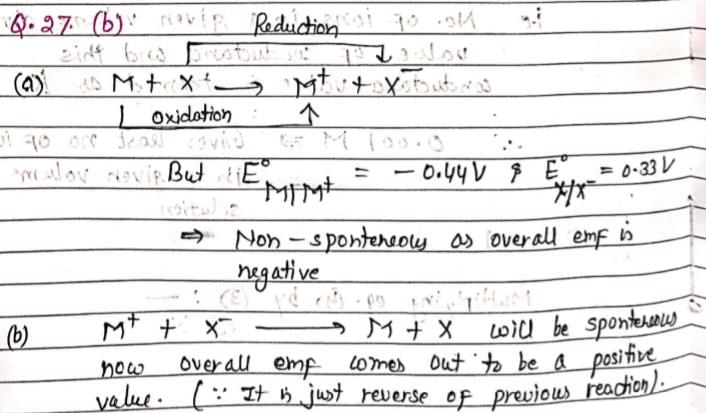 Q.27. (b) Reduction
(a) M + X ⟶ M⁺ + X⁻
oxidation
But E°M|M⁺ = - 0.44V & E°X/X⁻ = 0.33V
⇒ Non-spontereous as overall emf is
negative
(b) M⁺ + X⁻ ⟶ M + X will be spontereous
now overall emf comes out to be a positive
value. (∵ It is just reverse of previous reaction).